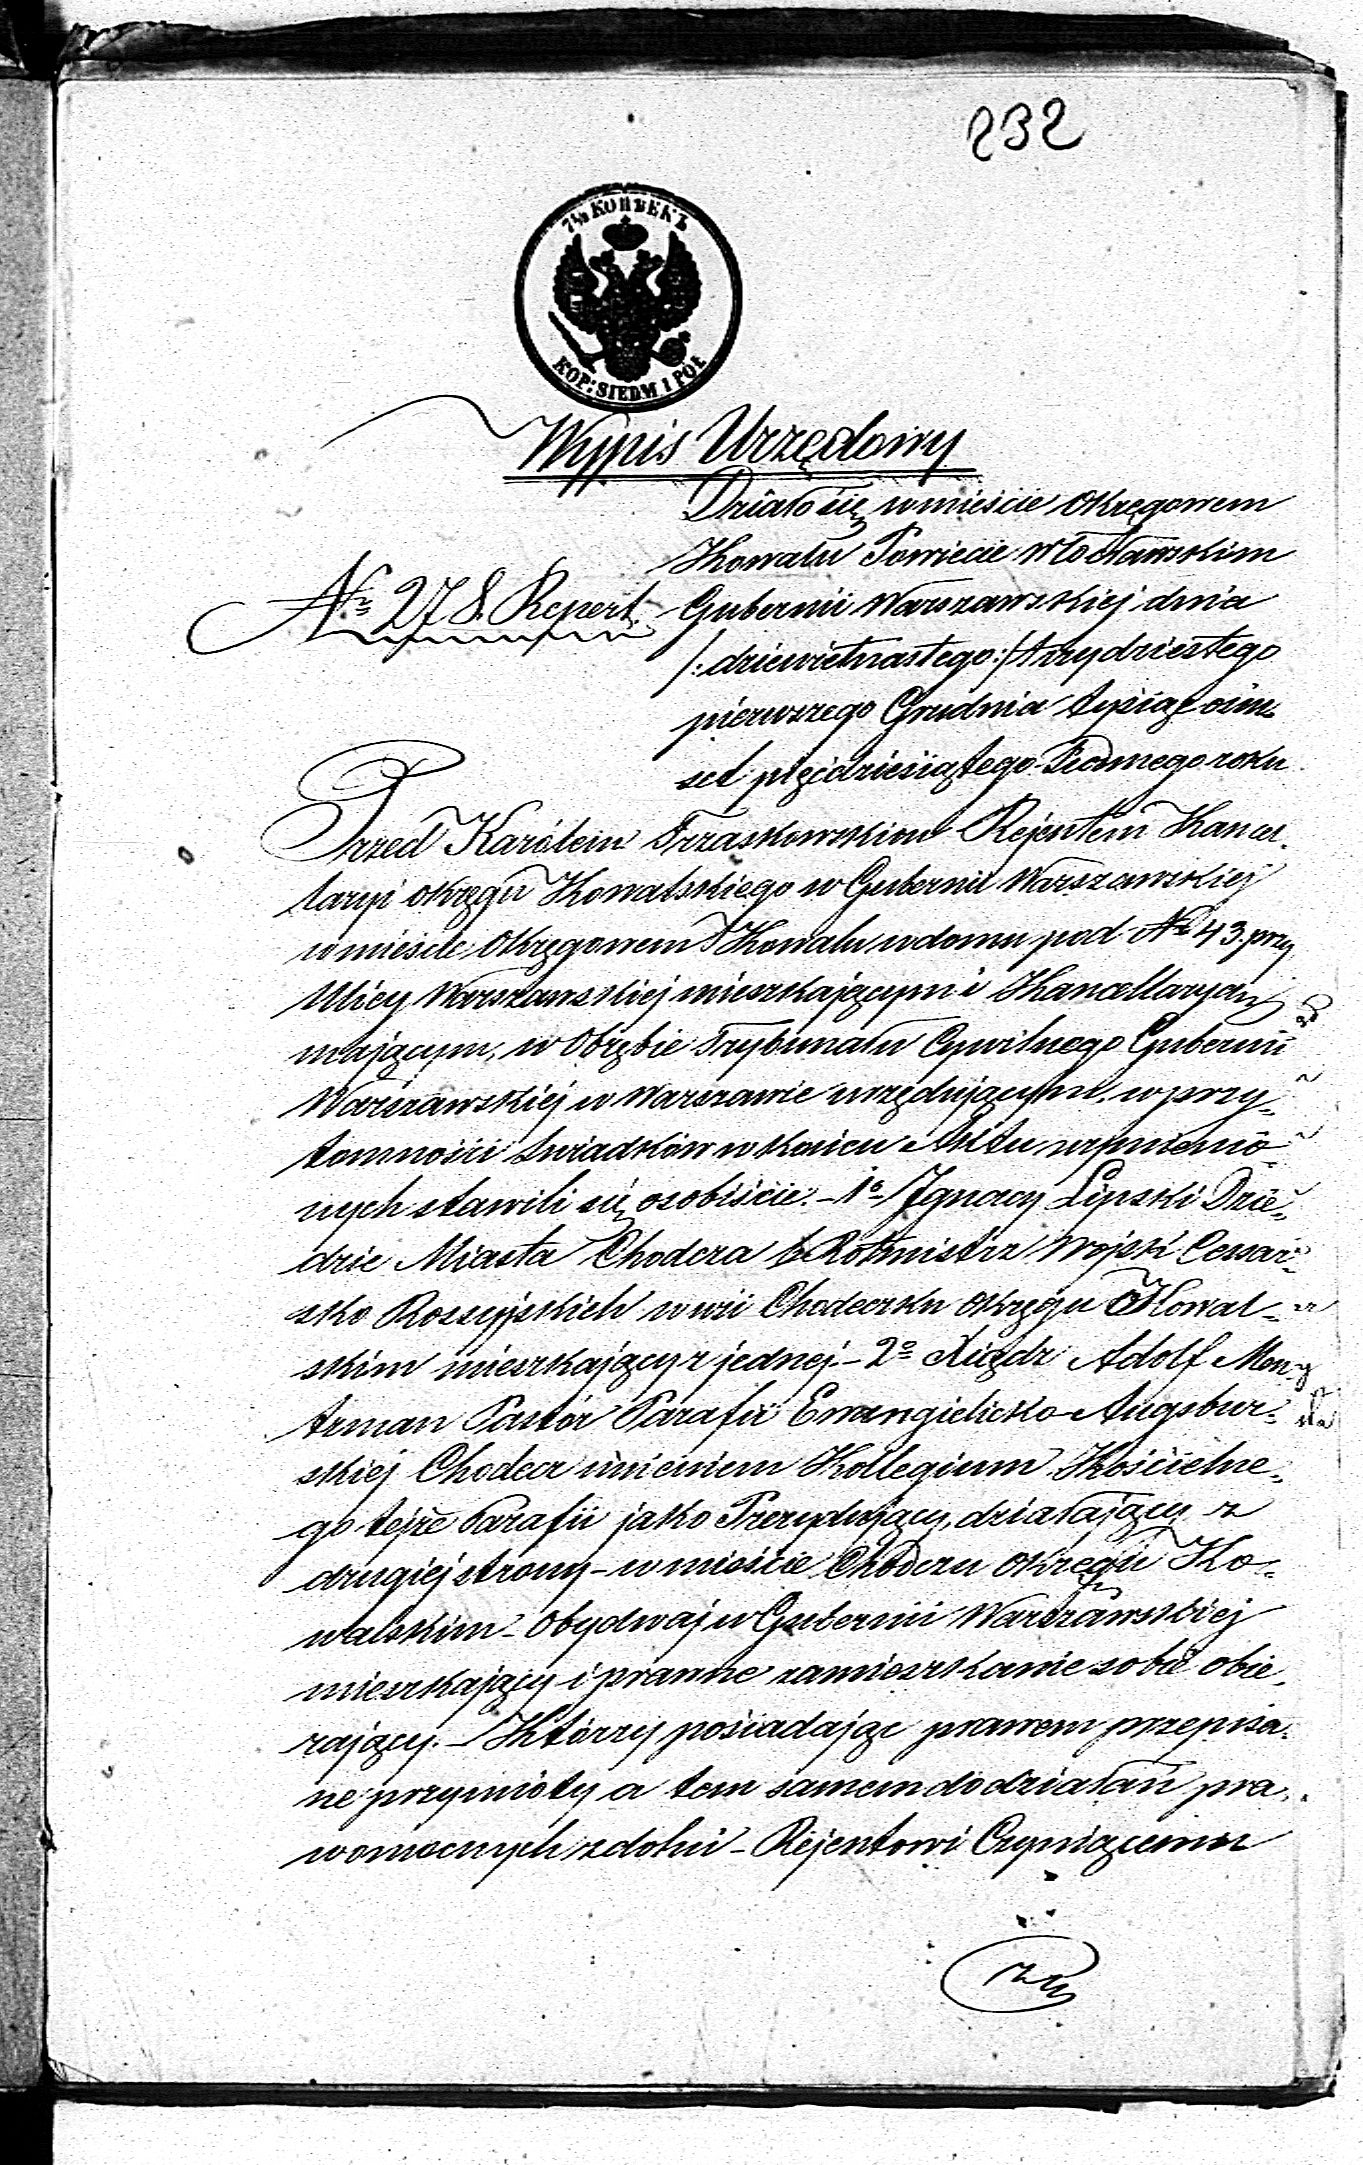 232
7½ КОПѢЕКЪ
KOP: SIEDM I PÓŁ
Wypis Urzędowy
Działo się w mieście Okręgowem
Kowalu Powiecie Włocławskim
№ 278 Repert. Gubernii Warszawskiej dnia
/: dziewietnastego :/ trzydziestego
pierwszego Grudnia tysiąc ośm-
set pięćdziesiątego siodmego roku
Przed Karólem Trzaskowskim Rejentem Kancel-
laryi okręgu Kowalskiego w Gubernii Warszawskiej
w mieście Okręgowem Kowalu w domu pod № 43. przy
Ulicy Warszawskiej mieszkającym i Kancellaryą
mającym, w Obrębie Trybunału Cywilnego Gubernii
Warszawskiej w Warszawie urzędującym, w przy-
tomności świadków w końcu Aktu wymienio-
nych stawili się osobiście. - 1o/ Ignacy Lipski Dzie-
dzic Miasta Chodcza b. Rotmistrz Wojsk Cesar-
sko Rossyjskich w wsi Chodeczku Okręgu Kowal-
skim mieszkający z jednej - 2o Xiądz Adolf Men-
trman Pastor Parafii Ewangielicko-Augsbur-
skiej Chodecz imieniem Kollegium Kościelne-
go tejże Parafii jako Prezydujący, działający z
drugiej strony - w mieście Chodczu Okręgu Ko-
walskim - Obydwaj w Gubernii Warszawskiej
mieszkający i prawne zamieszkanie sobie obie-
rający. - Którzy posiadając prawem przepisa-
ne przymioty a tem samem do działań pra-
womocnych zdolni - Rejentowi Czyniącemu